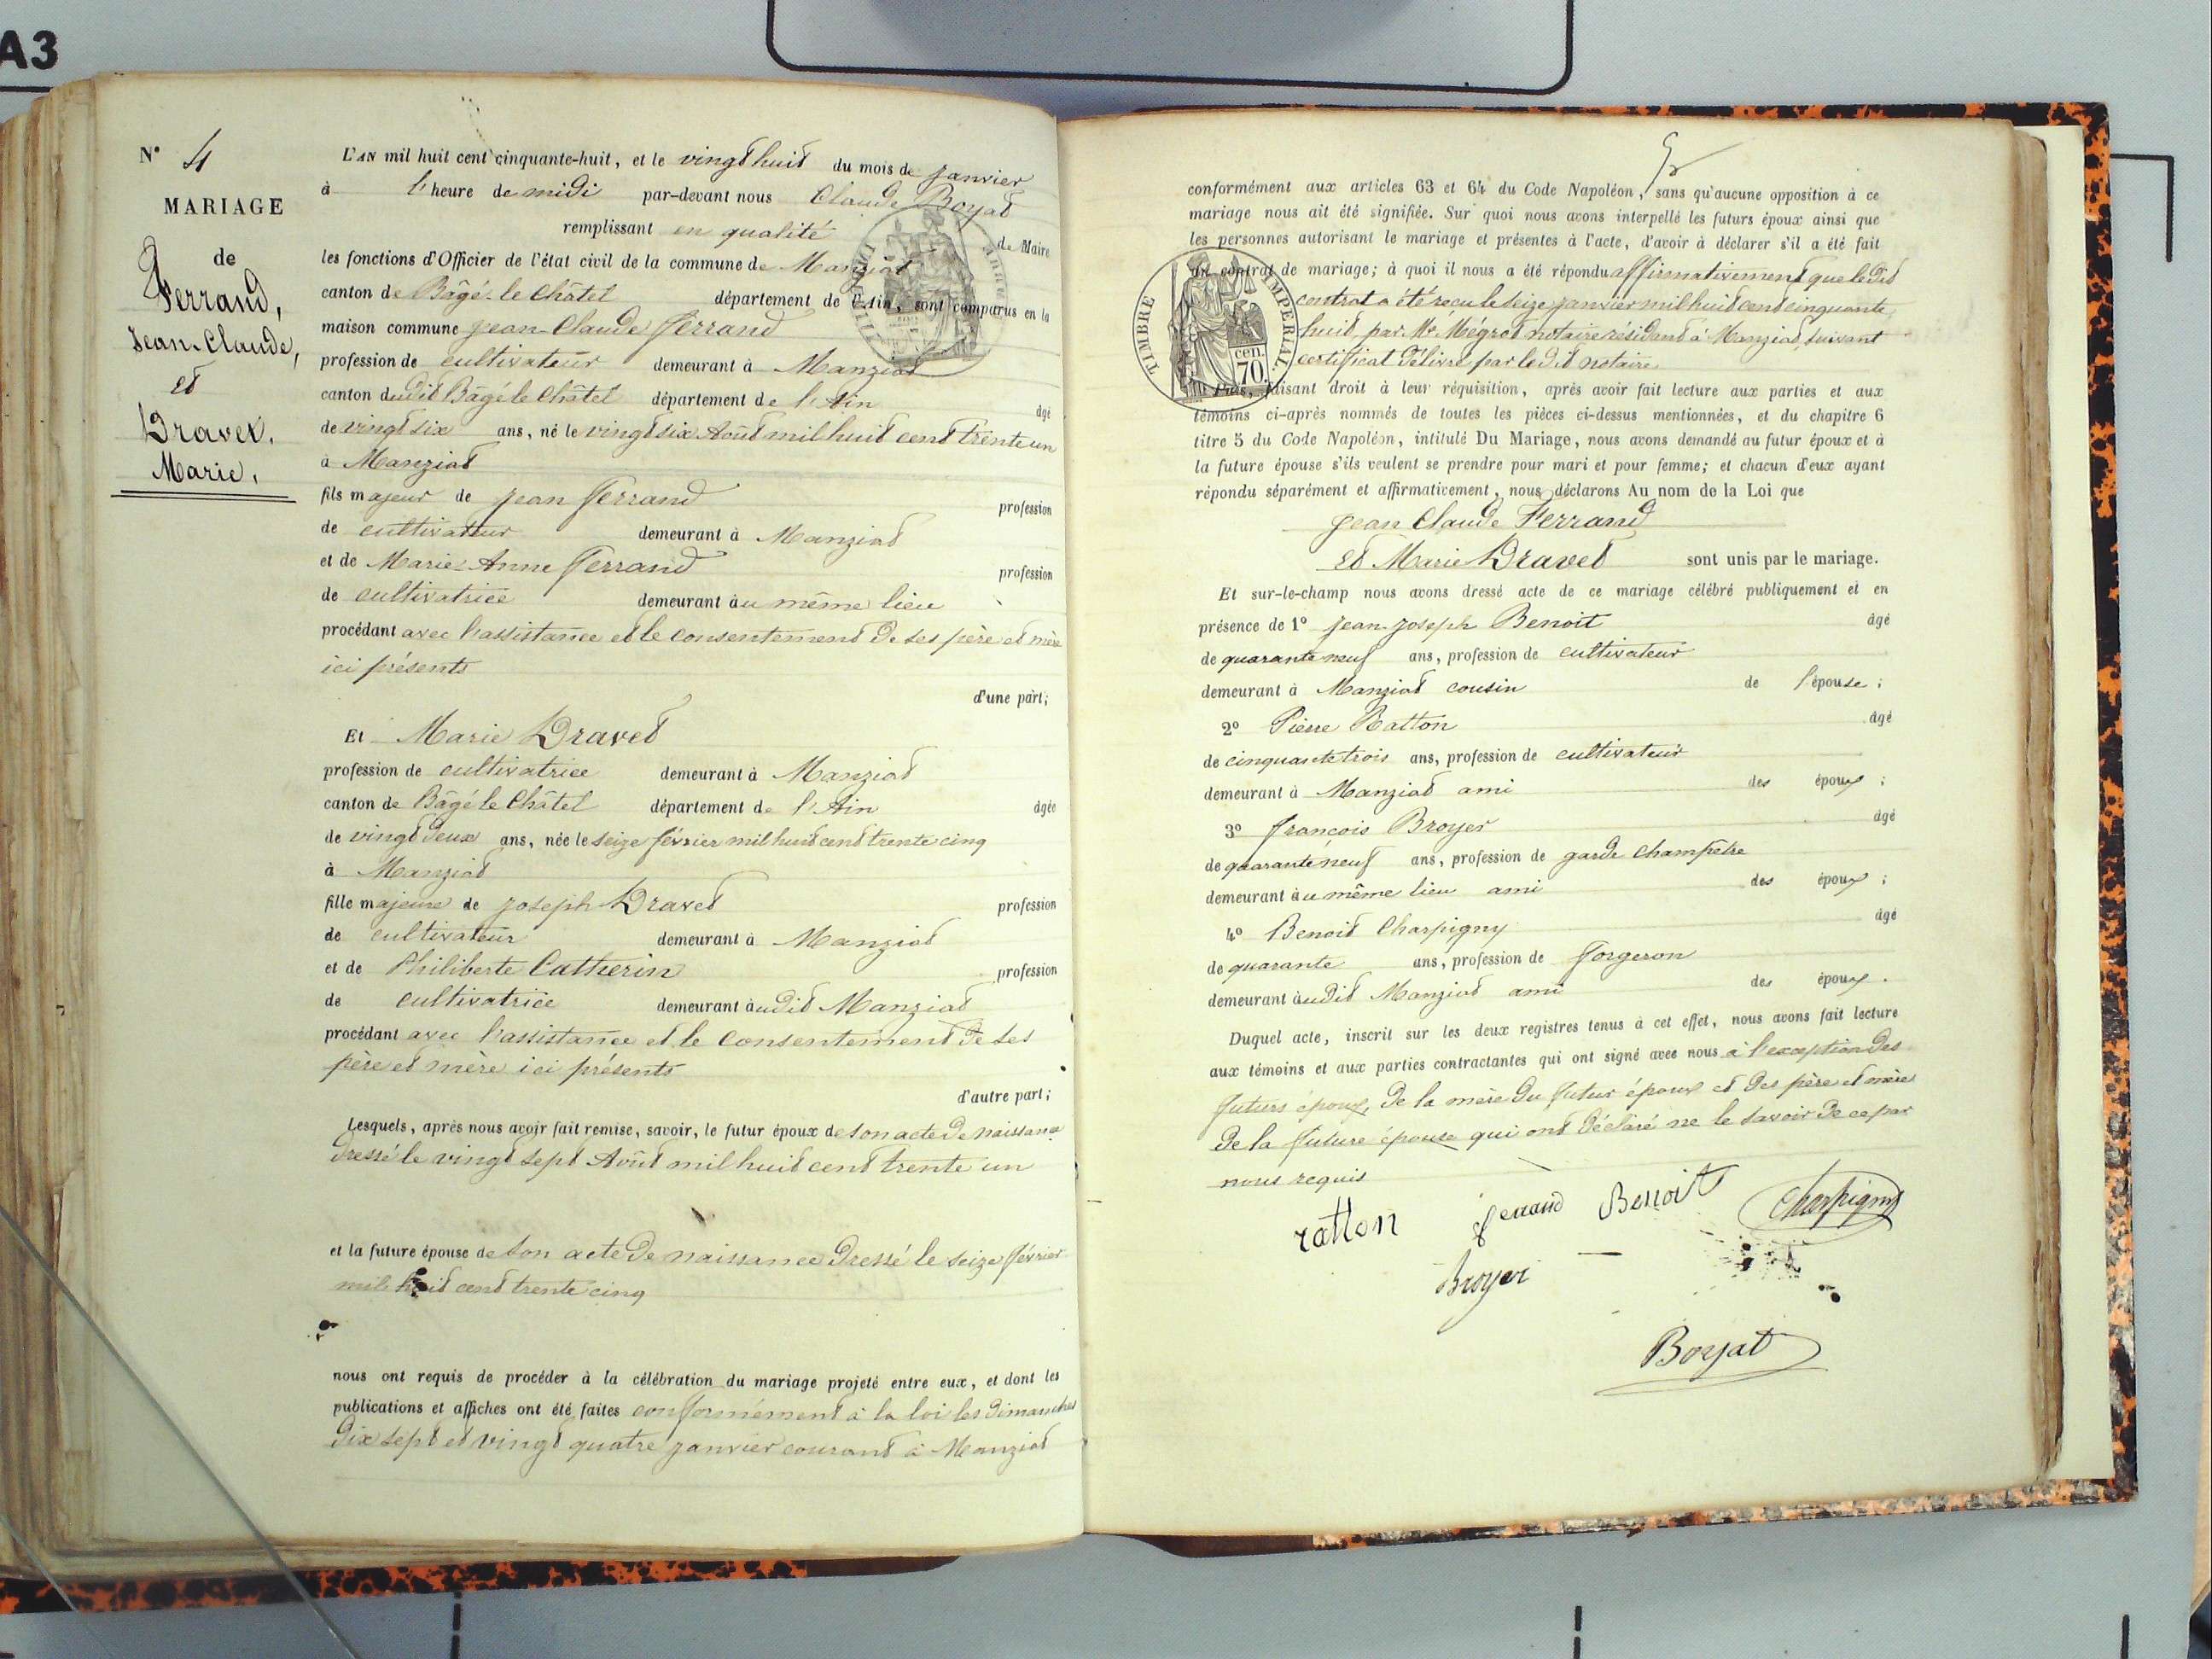 A3
N° 4
MARIAGE
de
Ferrand,
Jean-Claude,
et
Dravet,
Marie.
L'AN mil huit cent cinquante-huit, et le vingt huit du mois de janvier
à l'heure de midi par-devant nous Claude Boyat
remplissant en qualité de Maire
les fonctions d'Officier de l'état civil de la commune de Manziat
canton de Bâgé-le-Châtel département de l'Ain, sont comparus en la
maison commune Jean-Claude Ferrand
profession de cultivateur demeurant à Manziat
canton dudit Bâgé le Châtel département de l'Ain âgé
de vingt six ans, né le vingt six Août mil huit cent trente un
à Manziat
fils majeur de Jean Ferrand profession
de cultivateur demeurant à Manziat
et de Marie-Anne Ferrand profession
de cultivatrice demeurant au même lieu
procédant avec l'assistance et le consentement de ses père et mère
ici présents
d'une part;
Et Marie Dravet
profession de cultivatrice demeurant à Manziat
canton de Bâgé le Châtel département de l'Ain âgée
de vingt deux ans, née le seize février mil huit cent trente cinq
à Manziat
fille majeure de Joseph Dravet profession
de cultivateur demeurant à Manziat
et de Philiberte Catherin profession
de cultivatrice demeurant audit Manziat
procédant avec l'assistance et le consentement de ses
père et mère ici présents
d'autre part;
Lesquels, après nous avoir fait remise, savoir, le futur époux de son acte de naissance
dressé le vingt sept Août mil huit cent trente un
et la future épouse de son acte de naissance dressé le seize février
mil huit cent trente cinq
nous ont requis de procéder à la célébration du mariage projeté entre eux, et dont les
publications et affiches ont été faites conformément à la loi les dimanches
dix sept et vingt quatre janvier courant à Manziat
conformément aux articles 63 et 64 du Code Napoléon, sans qu'aucune opposition à ce
mariage nous ait été signifiée. Sur quoi nous avons interpellé les futurs époux ainsi que
les personnes autorisant le mariage et présentes à l'acte, d'avoir à déclarer s'il a été fait
un contrat de mariage; à quoi il nous a été répondu affirmativement que le dit
contrat a été reçu le seize janvier mil huit cent cinquante
huit par Me Mégrot notaire résidant à Manziat, suivant
certificat délivré par le dit notaire
TIMBRE IMPERIAL
cen.
70.
Puis, faisant droit à leur réquisition, après avoir fait lecture aux parties et aux
témoins ci-après nommés de toutes les pièces ci-dessus mentionnées, et du chapitre 6
titre 5 du Code Napoléon, intitulé Du Mariage, nous avons demandé au futur époux et à
la future épouse s'ils veulent se prendre pour mari et pour femme; et chacun d'eux ayant
répondu séparément et affirmativement, nous déclarons Au nom de la Loi que
Jean Claude Ferrand
et Marie Dravet sont unis par le mariage.
Et sur-le-champ nous avons dressé acte de ce mariage célébré publiquement et en
présence de 1° Jean-Joseph Benoit âgé
de quarante neuf ans, profession de cultivateur
demeurant à Manziat cousin de l'épouse;
2° Pierre Ratton âgé
de cinquante trois ans, profession de cultivateur
demeurant à Manziat ami des époux;
3° François Broyer âgé
de quarante neuf ans, profession de garde champêtre
demeurant au même lieu ami des époux;
4° Benoit Charpigny âgé
de quarante ans, profession de forgeron
demeurant audit Manziat ami des époux.
Duquel acte, inscrit sur les deux registres tenus à cet effet, nous avons fait lecture
aux témoins et aux parties contractantes qui ont signé avec nous à l'exception des
futurs époux, de la mère du futur époux et des père et mère
de la future épouse qui ont déclaré ne le savoir de ce par
nous requis
ratton ferrand Benoit Charpigny
Broyer
Boyat